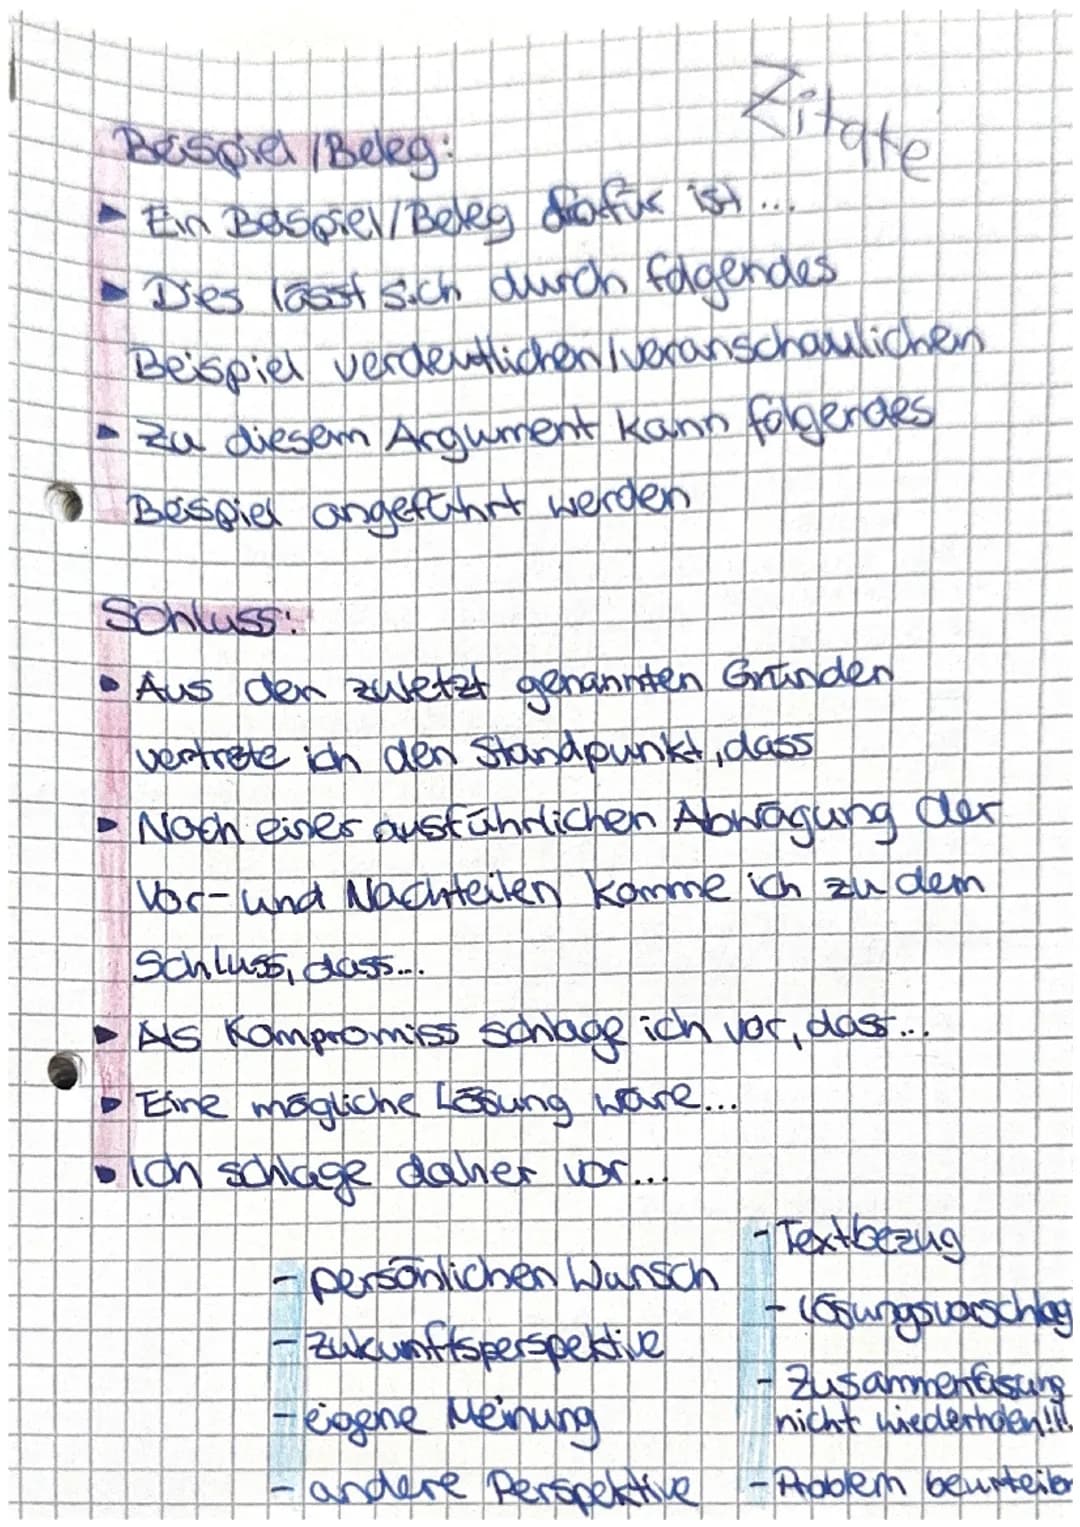 Zitate
Beispiel/Beleg:
Ein Beispiel/Beleg dafür ist...
Dies lässt sich durch folgendes
Beispiel verdeutlichen/veranschaulichen
Zu diesem Argument kann folgendes
Beispiel angeführt werden
Schluss:
Aus den zuletzt genannten Gründen
vertrete ich den Standpunkt, dass
Nach einer ausführlichen Abwägung der
Vor- und Nachteilen komme ich zu dem
Schluss, dass...
Als Kompromiss schlage ich vor, dass...
Eine mögliche Lösung wäre...
Ich schlage daher vor...
- persönlichen Wunsch
- Zukunftsperspektive
- eigene Meinung
- andere Perspektive
- Textbezug
- Lösungsvorschlag
- Zusammenfasung
nicht wiederholen!!!
- Problem beurteilen